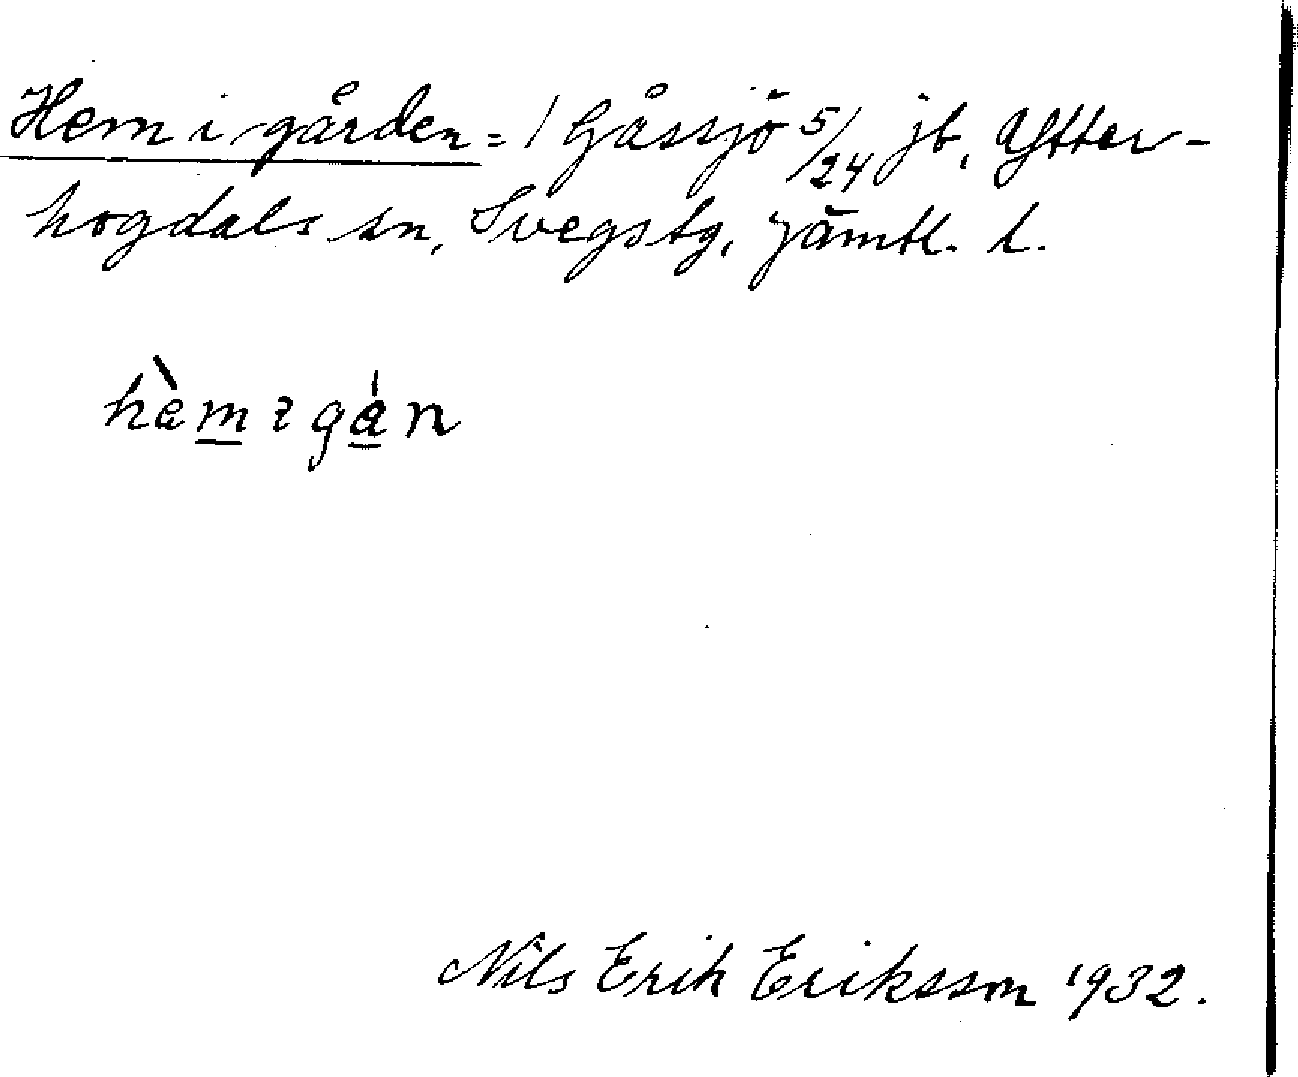 Hem i gården = / Gåssjö 5/24 jb, Ytter-
hogdals sn, Svegs tg, Jämtl. l.
hèmɩgán
Nils Erik Eriksson 1932.